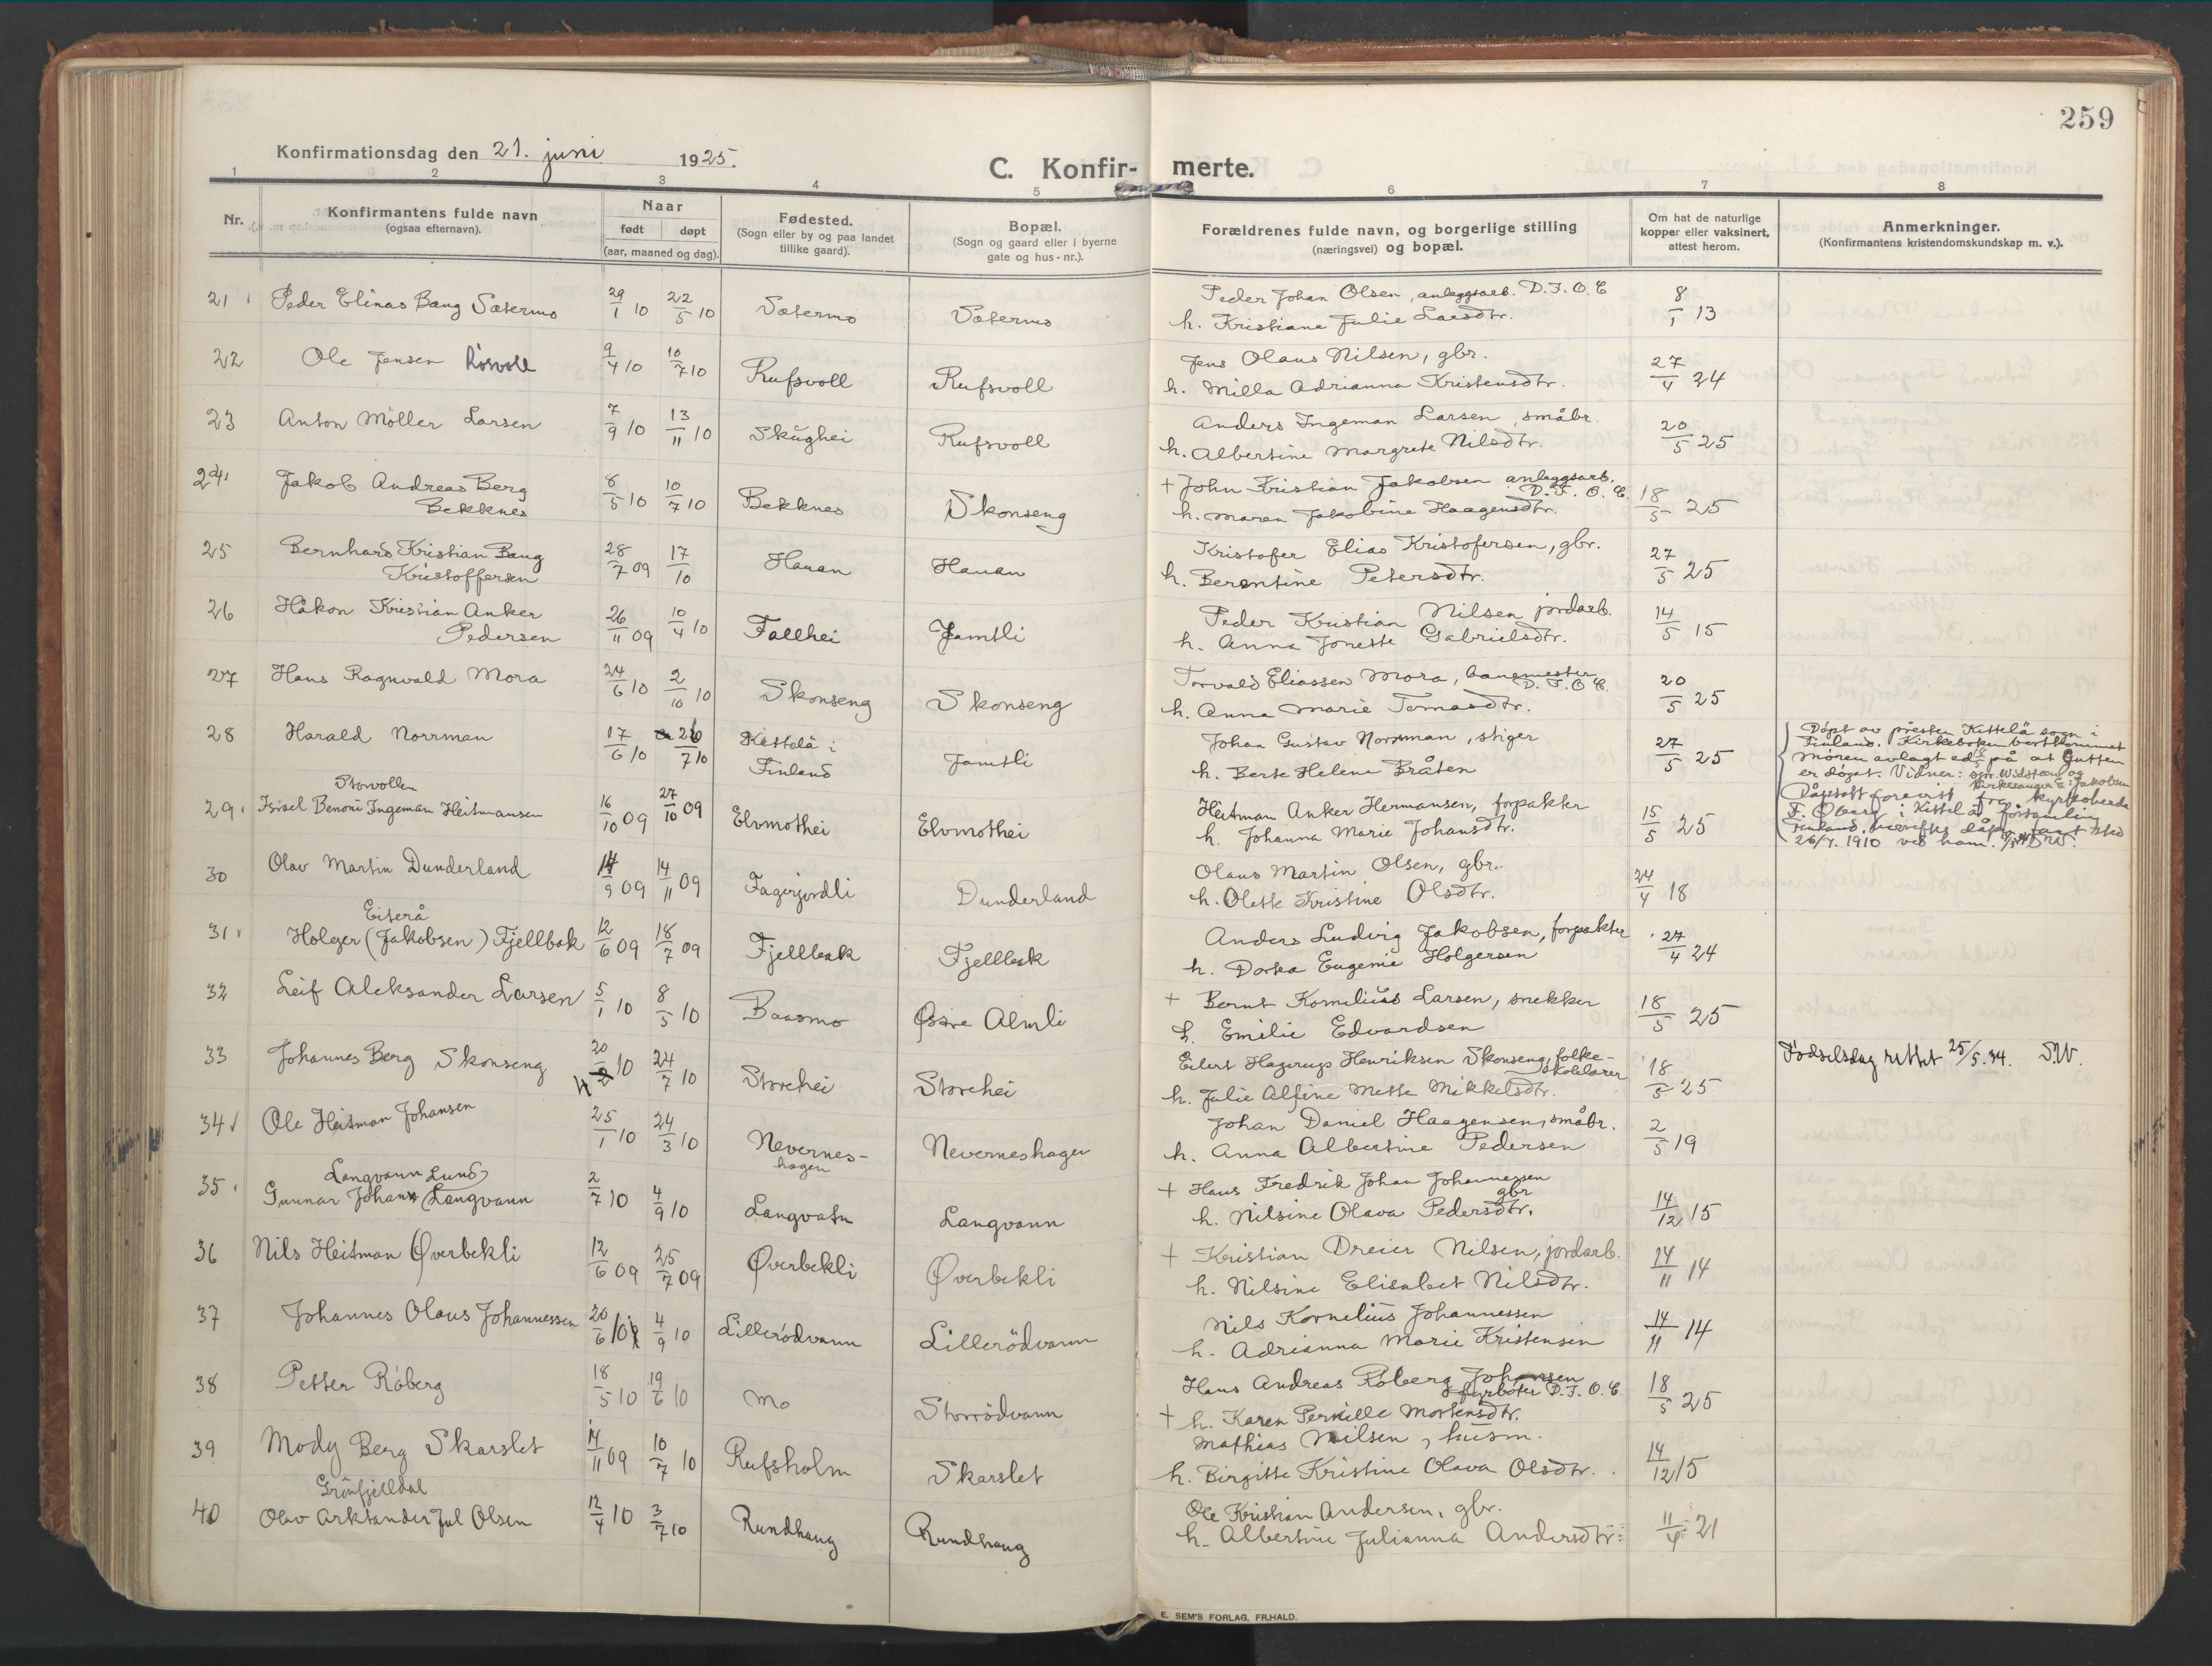 259
Konfirmationsdag den 21. juni 1925.
C. Konfir- merte.
1 2 3 4 5 6 7 8
Nr.
Konfirmantens fulde navn
(ogsaa efternavn).
Naar
født døpt
(aar, maaned og dag).
Fødested.
(Sogn eller by og paa landet
tillike gaard).
Bopæl.
(Sogn og gaard eller i byerne
gate og hus-nr.).
Forældrenes fulde navn, og borgerlige stilling
(næringsvei) og bopæl.
Om hat de naturlige
kopper eller vaksinert,
attest herom.
Anmerkninger.
(Konfirmantens kristendomskundskap m. v.).
21 Peder Elinas Bang Sætermo 29/1 10 22/5 10 Sætermo Sætermo Peder Johan Olsen, anleggsarb. D. F. O. C. 8/1 13
h. Kristiane Julie Larsdtr.
22 Ole Jensen Rösvoll 9/4 10 10/7 10 Rufsvoll Rufsvoll Jens Olaus Nilsen, gbr. 27/4 24
h. Milla Adrianna Kristensdtr.
23 Anton Möller Larsen 7/9 10 13/11 10 Skughei Rufsvoll Anders Ingeman Larsen, småbr. 20/5 25
h. Albertine Margrete Nilsdtr.
24 Jakob Andreas Berg 8/5 10 10/7 10 Bekknes Skonseng + John Kristian Jakobsen anleggsarb. D. F. O. C. 18/5 25
Bekknes h. Maren Jakobine Haagensdtr.
25 Bernhard Kristian Baug 28/7 09 17/10 Hauan Hauan Kristofer Elias Kristofersen, gbr. 27/5 25
Kristoffersen h. Berentine Petersdtr.
26 Håkon Kristian Anker 26/11 09 10/4 10 Fallhei Jamtli Peder Kristian Nilsen jordarb. 14/5 15
Pedersen h. Anna Jonette Gabrielsdtr.
27 Hans Ragnvald Mora 24/6 10 2/10 10 Skonseng Skonseng Torvald Eliassen Mora, banemester D. F. O. C. 20/5 25
h. Anna Marie Tomasdtr.
28 Harald Norrman 17/6 10 26/7 10 Kittelä i Jamtli Johan Gustav Norrman, stiger 27/5 25
Finland h. Berte Helene Bråten
Döpt av presten Kittelä sogn i
Finland. Kirkeboken bortkommet
Moren avlagt ed på at Gutten
er döpt. Vidner:
Kirkesanger E. Jakobsen
Dåpsatt forevist fra kyrkoherde
F. Öberg i Kittelä församling
Finland, hvorefter dåpen fant sted
26/7. 1910 ved ham.
Storvollen
29 Isael Benoni Ingeman Heitmansen 16/10 09 27/10 09 Elvmothei Elvmothei Heitman Anker Hermansen, forpakter 15/5 25
h. Johanna Marie Johansdtr.
30 Olav Martin Dunderland 14/9 09 14/11 09 Fagerjordli Dunderland Olaus Martin Olsen, gbr. 24/4 18
h. Olette Kristine Olsdtr.
Eiterå
31 Holger (Jakobsen) Fjellbak 12/6 09 18/7 09 Fjellbak Fjellbak Anders Ludvig Jakobsen, forpakter 27/4 24
h. Dorka Eugenie Holgersen
32 Leif Aleksander Larsen 5/1 10 8/5 10 Baasmo Østre Almli + Bernt Kornelius Larsen, snekker 18/5 25
h. Emilie Edvardsen
33 Johannes Berg Skonseng 20/4 10 24/7 10 Storhei Storhei Eilert Hagerup Henriksen Skonseng, folke- 18/5 25 Födselsdag rettet 25/5.34. S.W.
skolelærer
h. Julie Alfine Mette Mikkelsdtr.
34 Ole Heitman Johansen 25/1 10 24/3 10 Nevernes- Neverneshagen Johan Daniel Haagensen, småbr. 2/5 19
hagen h. Anna Albertine Pedersen
Langvann Lund
35 Gunnar Johan (Langvann 2/7 10 4/9 10 Langvatn Langvann + Hans Fredrik Johan Johannessen gbr 14/12 15
h. Nilsine Olava Pedersdtr.
36 Nils Heitman Øverbekli 12/6 09 25/7 09 Øverbekli Øverbekli + Kristian Dreier Nilsen, jordarb. 14/11 14
h. Nilsine Elisabet Nilsdtr.
37 Johannes Olaus Johannessen 20/6 10 4/9 10 Lillerödvann Lillerödvann Nils Kornelius Johannessen 14/11 14
h. Adrianna Marie Kristensen
38 Petter Röberg 18/5 10 19/6 10 Mo Storrödvann Hans Andreas Röberg Johansen 18/5 25
fyrböter D. F. O. C.
+ h. Karen Pernille Mortensdtr.
39 Mody Berg Skarslet 14/11 09 10/7 10 Rufsholm Skarslet Mathias Nilsen, husm. 14/12 15
h. Birgitte Kristine Olava Olsdtr.
Grönfjelldal
40 Olav Arktander Jul Olsen 12/4 10 3/7 10 Rundhaug Rundhaug Ole Kristian Andersen, gbr. 11/4 21
h. Albertine Julianna Andersdtr.
E. SEM'S FORLAG, FR.HALD.